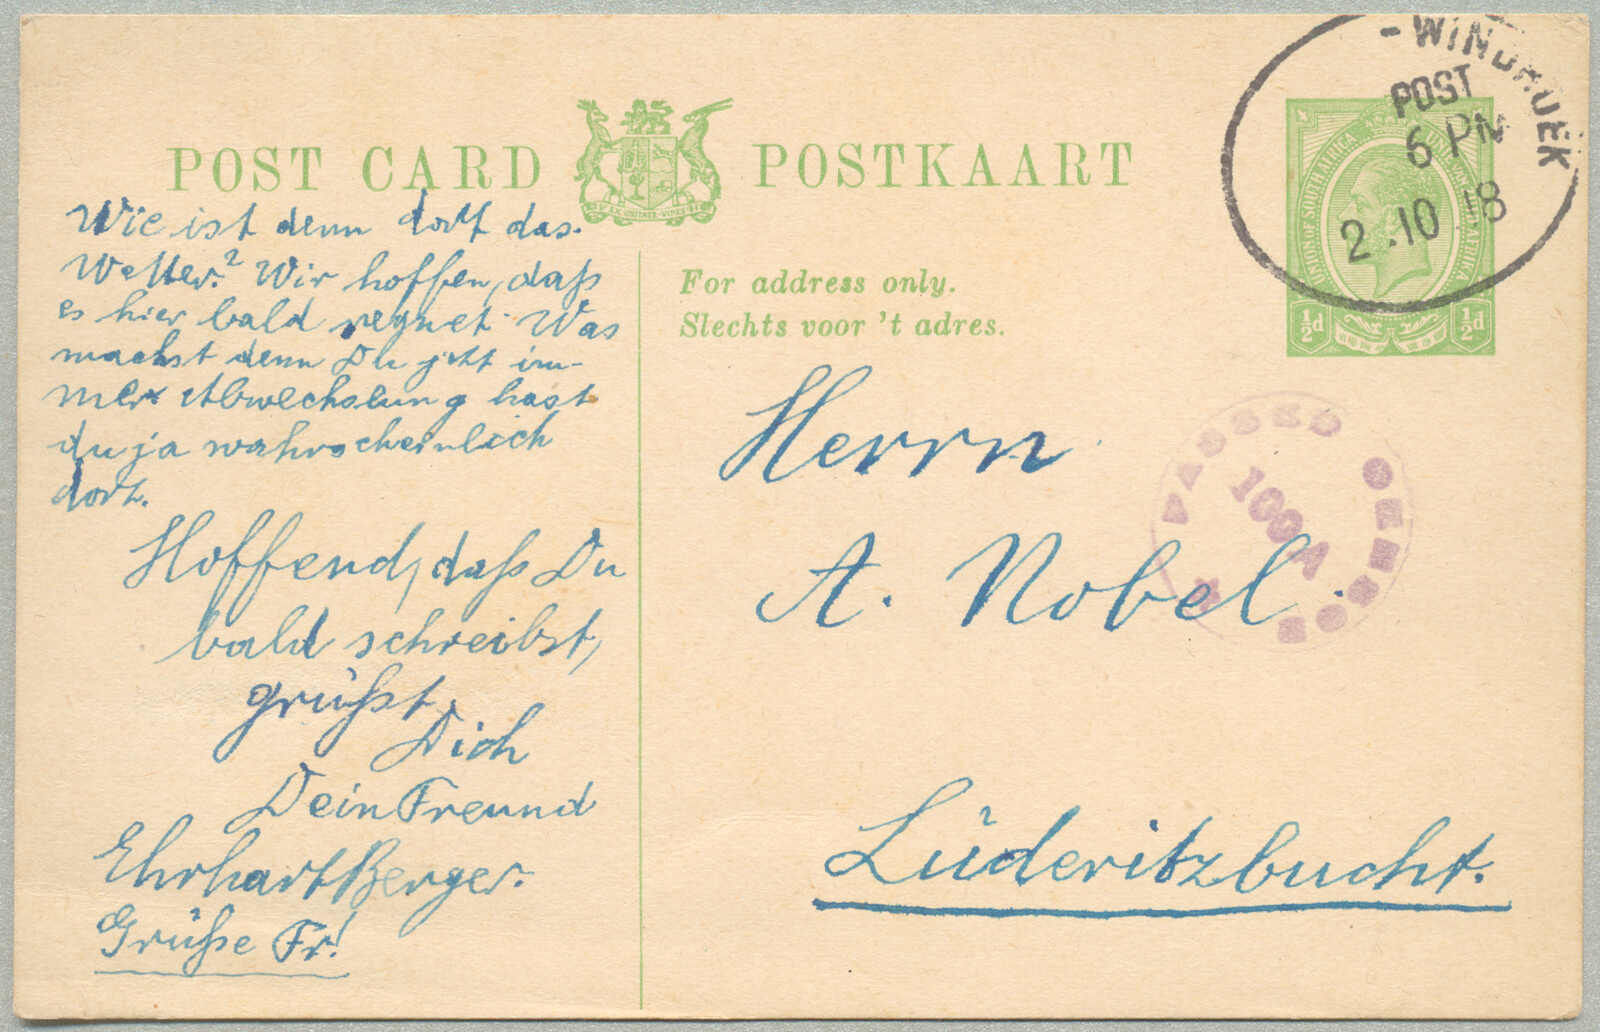 POST CARD POSTKAART
-WINDHUEK
POST
6 PM
2.10.18
UNION OF SOUTH AFRICA
½d ½d
For address only.
Slechts voor 't adres.
PASSED CENSOR
100A
Wie ist denn dort das
Wetter? Wir hoffen, daß
es hier bald regnet. Was
machst denn Du jetzt im-
mer Abwechslung hast
du ja wahrscheinlich
dort.
Hoffend, daß Du
bald schreibst,
grüßt
Dich
Dein Freund
Ehrhart Berger.
Grüße Fr!
Herrn
A. Nobel.
Lüderitzbucht.